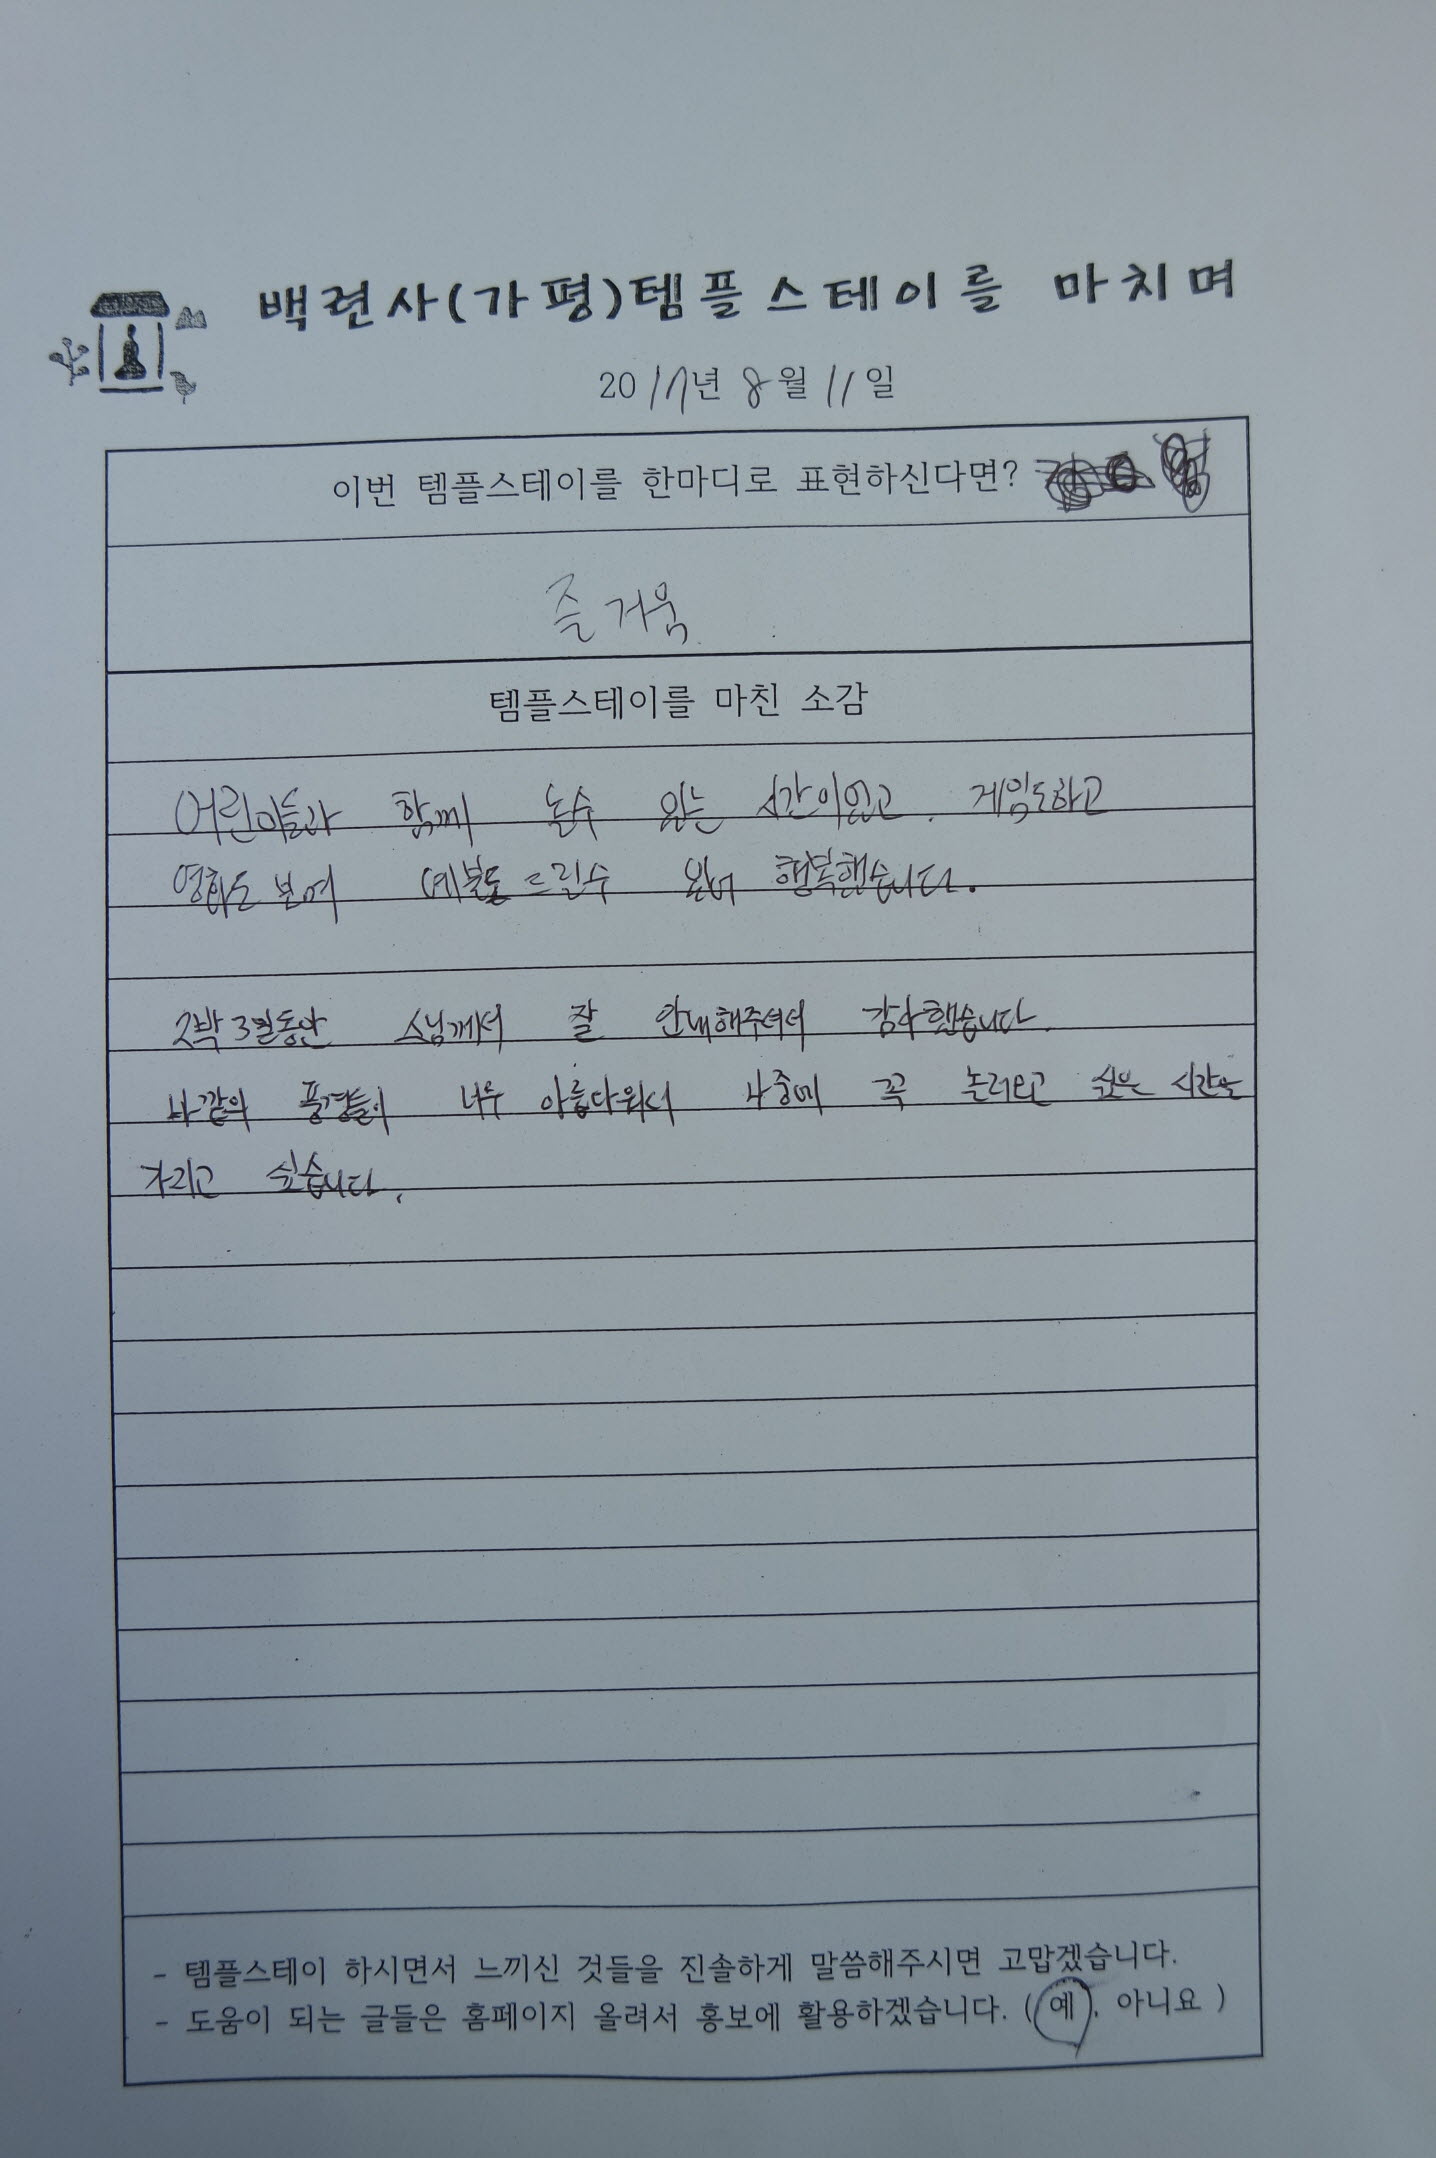 백련사(가평)템플스테이를 마치며
2017년 8월 11일
이번 템플스테이를 한마디로 표현하신다면?
즐거움
템플스테이를 마친 소감
어린이들과 함께 놀수 있는 시간이었고, 게임도하고
영화도 보며 예불도 드릴수 있어 행복했습니다.
2박3일동안 스님께서 잘 안내해주셔서 감사했습니다
바깥의 풍경들이 너무 아름다워서 나중에 꼭 놀러오고 싶은 시간을
가지고 싶습니다.
- 템플스테이 하시면서 느끼신 것들을 진솔하게 말씀해주시면 고맙겠습니다.
- 도움이 되는 글들은 홈페이지 올려서 홍보에 활용하겠습니다. ( 예, 아니요 )